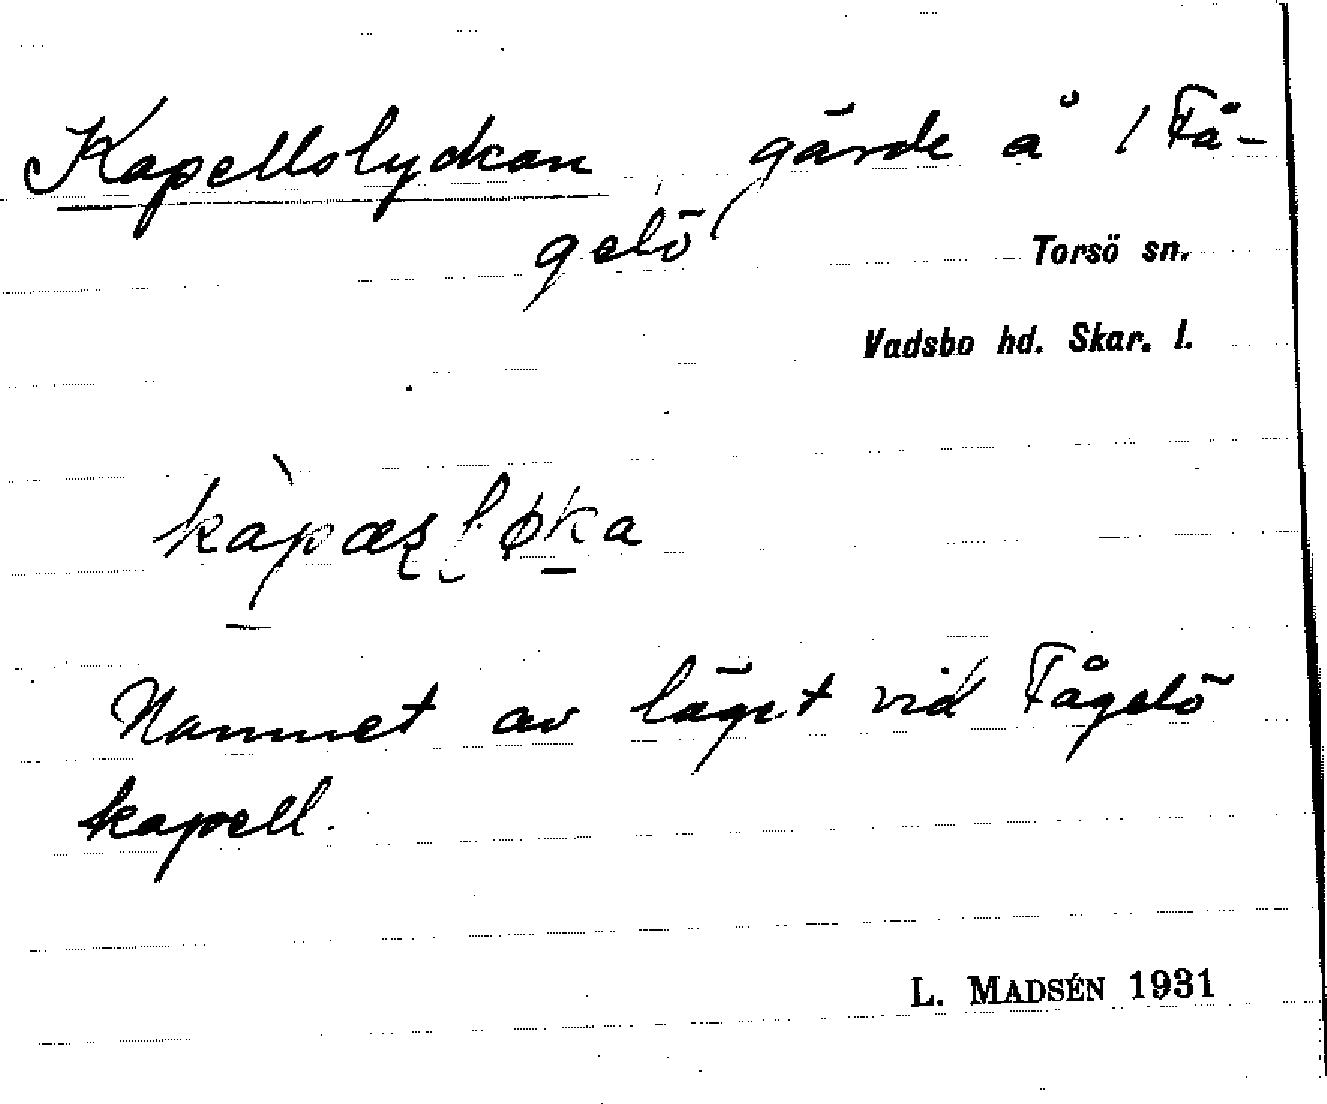 Kapellslyckan, gärde å 1 Få-
gelö
Torsö sn.
Vadsbo hd. Skar. l.
Namnet av läget vid Fågelö
kapell.
L. MADSÉN 1931